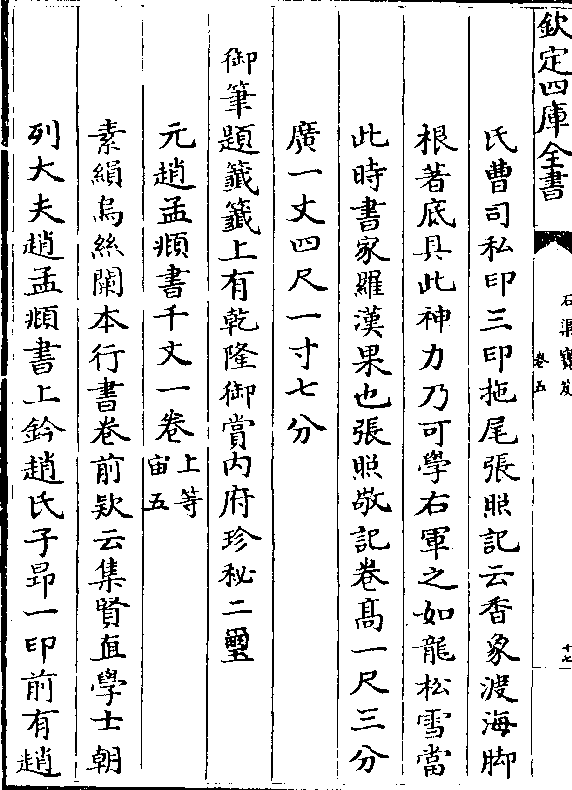 欽定四庫全書
石渠寶笈
卷五
十七
氏曹司私印三印拖尾張照記云香象渡海脚
根著底具此神力乃可學右軍之如龍松雪當
此時書家羅漢果也張照敬記卷髙一尺三分
廣一丈四尺一寸七分
御筆題籤籤上有乾隆御賞内府珍秘二璽
元趙孟頫書千文一卷上等
宙五
素絹烏絲闌本行書卷前欵云集賢直學士朝
列大夫趙孟頫書上鈐趙氏子昂一印前有趙